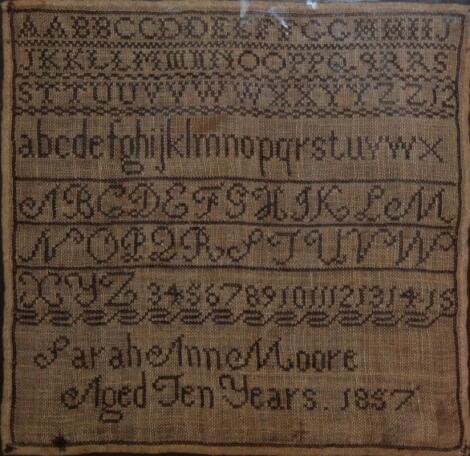 AABBCCDDEEFFGGHHIIJ
JKKLLMMNNOOPPQQRRS
STTUUVVWWXXYYZZ12
abcdefghijklmnopqrstuvwx
ABCDEFGHIKLM
NOPQRSTUVW
XYZ 3456789101112131415
Sarah Anne Moore
Aged Ten Years. 1857